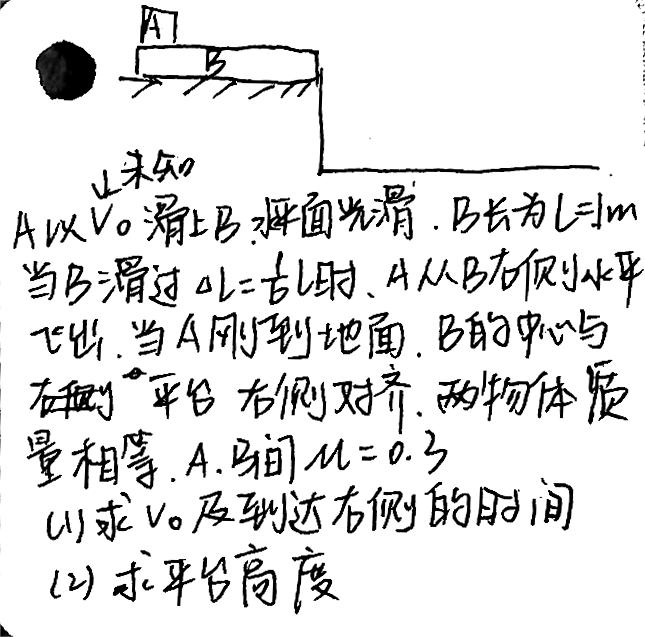 A
B
未知
A以V₀滑上B.平面光滑.B长为L=1m
当B滑过ΔL=1/6L时、A从B右侧水平
飞出.当A刚到地面.B的中心与
右侧平台右侧对齐.两物体质
量相等.A.B间μ=0.3
(1)求V₀及到达右侧的时间
(2)求平台高度